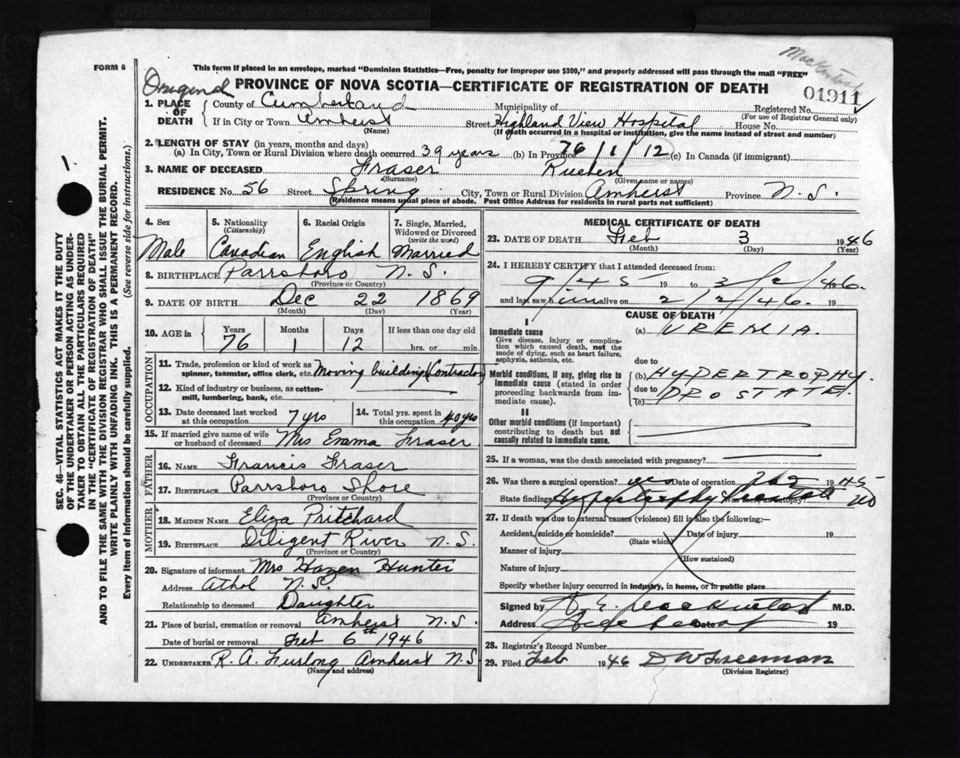 This form if placed in an envelope, marked "Dominion Statistics—Free, penalty for improper use $300," and properly addressed will pass through the mail "FREE"
FORM 6
Original PROVINCE OF NOVA SCOTIA—CERTIFICATE OF REGISTRATION OF DEATH
01911
1. PLACE OF DEATH County of Cumberland Municipality of Registered No.
(For use of Registrar General only)
If in City or Town Amherst Street Highland View Hospital House No.
(Name) (If death occurred in a hospital or institution, give the name instead of street and number)
2. LENGTH OF STAY (in years, months and days)
(a) In City, Town or Rural Division where death occurred 39 years (b) In Province 76/1/12 (c) In Canada (if immigrant)
3. NAME OF DECEASED Fraser Rueben
(Surname) (Given name or names)
RESIDENCE No. 56 Street Spring City, Town or Rural Division Amherst Province N.S.
(Residence means usual place of abode. Post Office Address for residents in rural parts not sufficient)
4. Sex 5. Nationality (Citizenship) 6. Racial Origin 7. Single, Married, Widowed or Divorced (write the word)
Male Canadian English Married
8. BIRTHPLACE Parrsboro N.S.
(Province or Country)
9. DATE OF BIRTH Dec 22 1869
(Month) (Day) (Year)
10. AGE in Years Months Days If less than one day old
76 1 12 hrs. or min.
OCCUPATION
11. Trade, profession or kind of work as spinner, teamster, office clerk, etc. Moving building Contractor
12. Kind of industry or business, as cotton-mill, lumbering, bank, etc.
13. Date deceased last worked at this occupation 7 yrs 14. Total yrs. spent in this occupation 40 yrs
15. If married give name of wife or husband of deceased Mrs Emma Fraser
FATHER
16. NAME Francis Fraser
17. BIRTHPLACE Parrsboro Shore
(Province or Country)
MOTHER
18. MAIDEN NAME Eliza Pritchard
19. BIRTHPLACE Diligent River N.S.
(Province or Country)
20. Signature of informant Mrs Hazen Hunter
Address Athol N.S.
Relationship to deceased Daughter
21. Place of burial, cremation or removal Amherst N.S.
Date of burial or removal Feb 6th 1946
22. UNDERTAKER R. A. Furlong Amherst N.S.
(Name and address)
MEDICAL CERTIFICATE OF DEATH
23. DATE OF DEATH Feb 3 1946
(Month) (Day) (Year)
24. I HEREBY CERTIFY that I attended deceased from:
9/45 19 to 3/2/46.
and last saw him alive on 2/2/46. 19
CAUSE OF DEATH
I
Immediate cause (a) UREMIA.
Give disease, injury or complication which caused death, not the mode of dying, such as heart failure, asphyxia, asthenia, etc.
due to
Morbid conditions, if any, giving rise to immediate cause (stated in order proceeding backwards from immediate cause). (b) HYPERTROPHY.
due to PROSTATE.
(c)
II
Other morbid conditions (if important) contributing to death but not causally related to immediate cause.
25. If a woman, was the death associated with pregnancy?
26. Was there a surgical operation? yes Date of operation 1945
State findings Hypertrophy Prostate autopsy? no
27. If death was due to external causes (violence) fill in also the following:—
Accident, suicide or homicide? Date of injury 19
(State which)
Manner of injury
(How sustained)
Nature of injury
Specify whether injury occurred in industry, in home, or in public place
Signed by M.D.
Address Date 19
28. Registrar's Record Number
29. Filed Feb 1946 D W Freeman
(Division Registrar)
SEC. 46—VITAL STATISTICS ACT MAKES IT THE DUTY
OF THE UNDERTAKER OR PERSON ACTING AS UNDER-
TAKER TO OBTAIN ALL THE PARTICULARS REQUIRED
IN THE "CERTIFICATE OF REGISTRATION OF DEATH"
AND TO FILE THE SAME WITH THE DIVISION REGISTRAR WHO SHALL ISSUE THE BURIAL PERMIT.
WRITE PLAINLY WITH UNFADING INK. THIS IS A PERMANENT RECORD.
Every item of information should be carefully supplied. (See reverse side for instructions.)